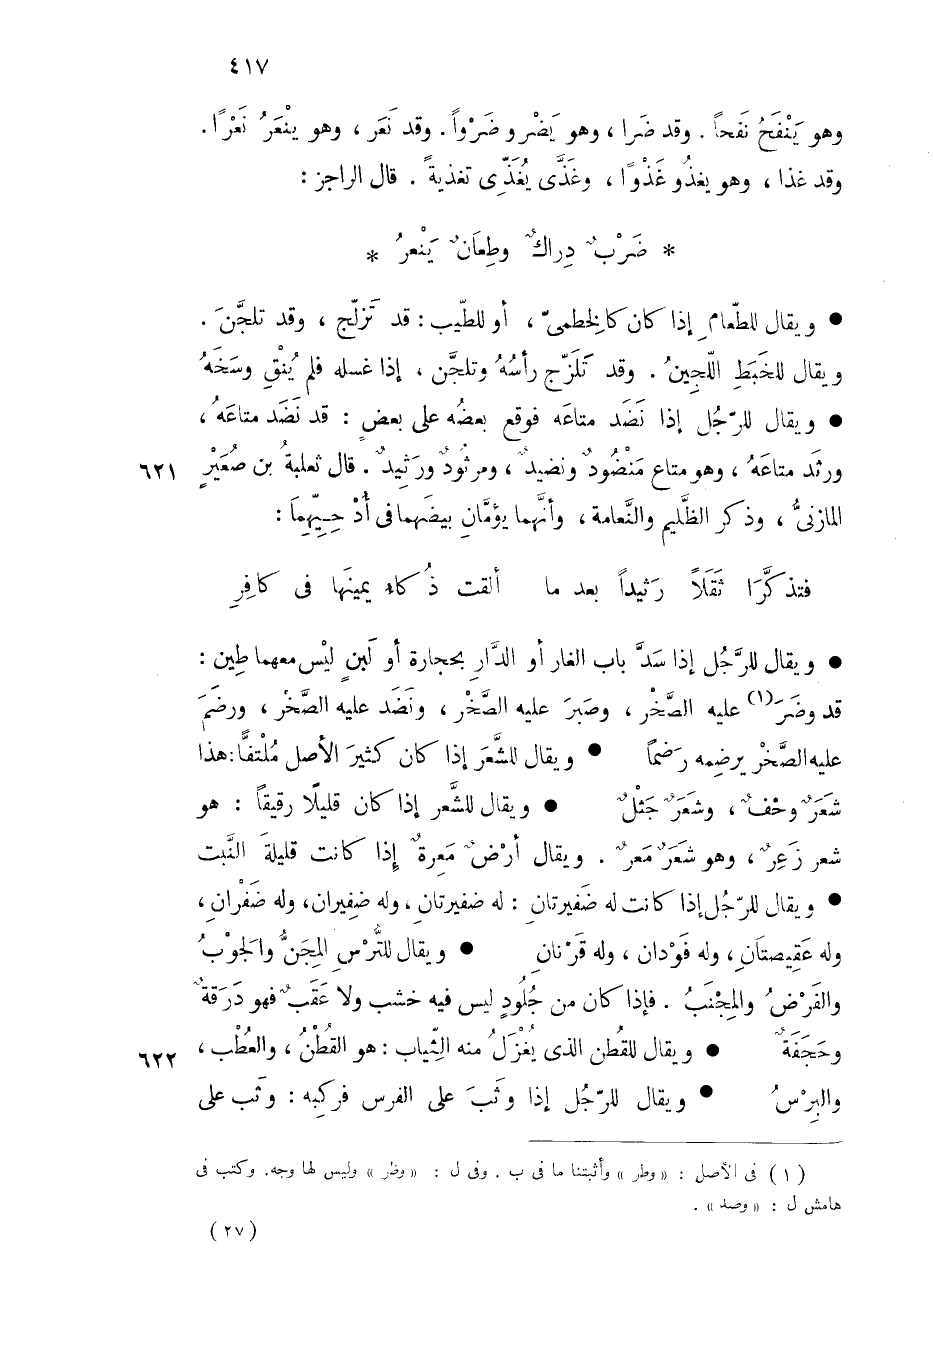 ٤١٧
وهو يَنْفَحُ نَفحاً . وقد ضَرا ، وهو يَضْرو ضَرْواً . وقد نَعَر ، وهو ينْعَرُ نَعْرًا .
وقد غذا ، وهو يغذُو غَذْوًا ، وغَذَّى يُغَذِّى تغذيةً . قال الراجز :
* ضَرْبٌ دِراكٌ وطِعَانٌ يَنْعرُ *
● ويقال للطَّعامِ إذا كان كالخطمىّ ، أو للطِّيب : قد تَزلّج ، وقد تلجَّنَ .
ويقال للخَبَطِ اللَّجِينُ . وقد تَلَزّج رأسُهُ وتلجَّن ، إذا غسله فلم يُنْقِ وسَخَهُ
● ويقال للرّجُل إذا نَضَد متاعَه فوقع بعضُه على بعضٍ : قد نَضَد متاعَهُ ،
ورثَد متاعَهُ ، وهو متاع مَنْضُودٌ ونضيدٌ ، ومرثُودٌ ورَثِيدٌ . قال ثعلبةُ بن صُعَيْرٍ ٦٢١
المازنىُّ ، وذكر الظَّليم والنَّعامة ، وأنَّهما يؤمَّانِ بيضَهما فى أُدْحِيِّهِمَا :
فتذكَّرَا ثَقَلاً رَثيداً بعد ما ألقت ذُكاء يمينَها فى كافِرِ
● ويقال للرَّجُل إذا سَدَّ باب الغار أو الدَّارِ بحجارة أو لَبِنٍ ليْس معهما طِين :
قد وضَرَ (١) عليه الصَّخْر ، وصَبرَ عليه الصَّخْر ، ونَضَد عليه الصَّخْر ، ورضَمَ
عليه الصَّخْر يرضِمه رَضمًا ● ويقال للشَّعَر إذا كان كثيرَ الأصل مُلْتفًّا : هذا
شعَرٌ وحْفٌ ، وشَعَرٌ جَثْلٌ ● ويقال للشَّعر إذا كان قليلًا رقيقاً : هو
شعر زَعِرٌ ، وهو شعَرٌ مَعرٌ . ويقال أرْضٌ مَعِرةٌ إِذا كانت قليلةَ النَّبت
● ويقال للرّجُل إذا كانت له ضَفيرتانِ : له ضفيرتانِ ، وله ضفِيران ، وله ضَفْران ،
وله عَقِيصتَانِ ، وله فَوْدان ، وله قَرْنانِ ● ويقال للتُّرْسِ المِجَنُّ والجَوْبُ
والفَرْضُ والمِجْنَبُ . فإذا كان من جُلُودٍ ليس فيه خشب ولا عَقَبٌ فهو دَرَقةٌ
وحَجَفَةٌ ● ويقال للقُطن الذى يُغْزَلُ منه الثِّياب : هو القُطْنُ ، والعُطْب ، ٦٢٢
والبِرْسُ ● ويقال للرّجُل إذا وثَبَ على الفرس فركِبه : وَثب على
(١) فى الأصل : « وطر » وأثبتنا ما فى ب . وفى ل : « وظر » وليس لها وجه. وكتب فى
هامش ل : « وصد » .
(٢٧)